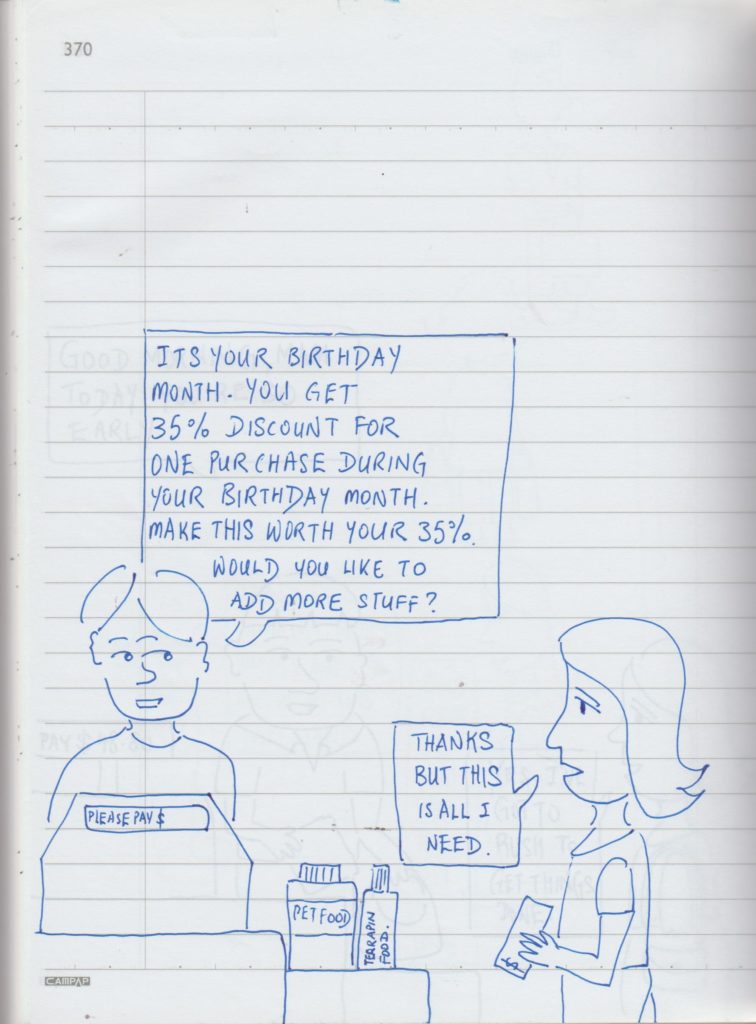 370
ITS YOUR BIRTHDAY
MONTH. YOU GET
35% DISCOUNT FOR
ONE PURCHASE DURING
YOUR BIRTHDAY MONTH.
MAKE THIS WORTH YOUR 35%.
WOULD YOU LIKE TO
ADD MORE STUFF?
THANKS
BUT THIS
IS ALL I
NEED.
PLEASE PAY $
PET FOOD
TERRAPIN
FOOD.
$
CAMPAP